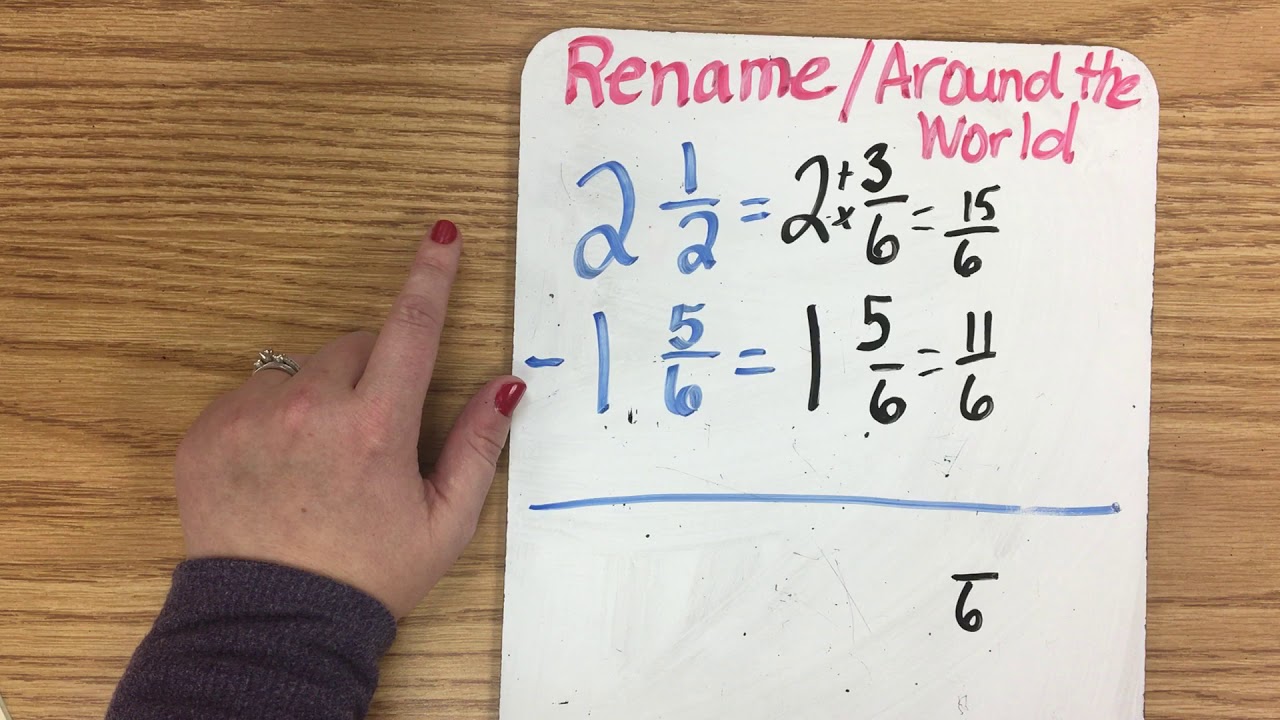 Rename/Around the
World
2 1/2 = 2 + x 3/6 = 15/6
- 1 5/6 = 1 5/6 = 11/6
/6